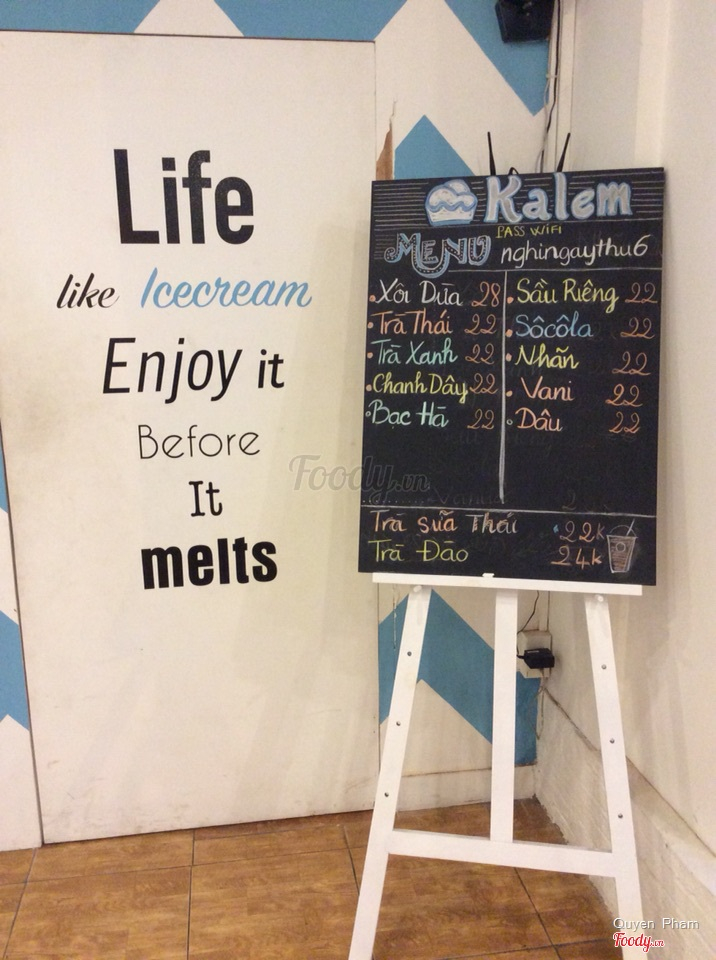 Life
like Icecream
Enjoy it
Before
It
melts
Kalem
PASS WiFi
MENU nghingaythu6
Xôi Dừa 28
Trà Thái 22
Trà Xanh 22
Chanh Dây 22
Bạc Hà 22
Sầu Riêng 22
Sôcôla 22
Nhãn 22
Vani 22
Dâu 22
Trà sữa Thái 22k
Trà Đào 24k
Foody.vn
Quyen Pham
Foody.vn